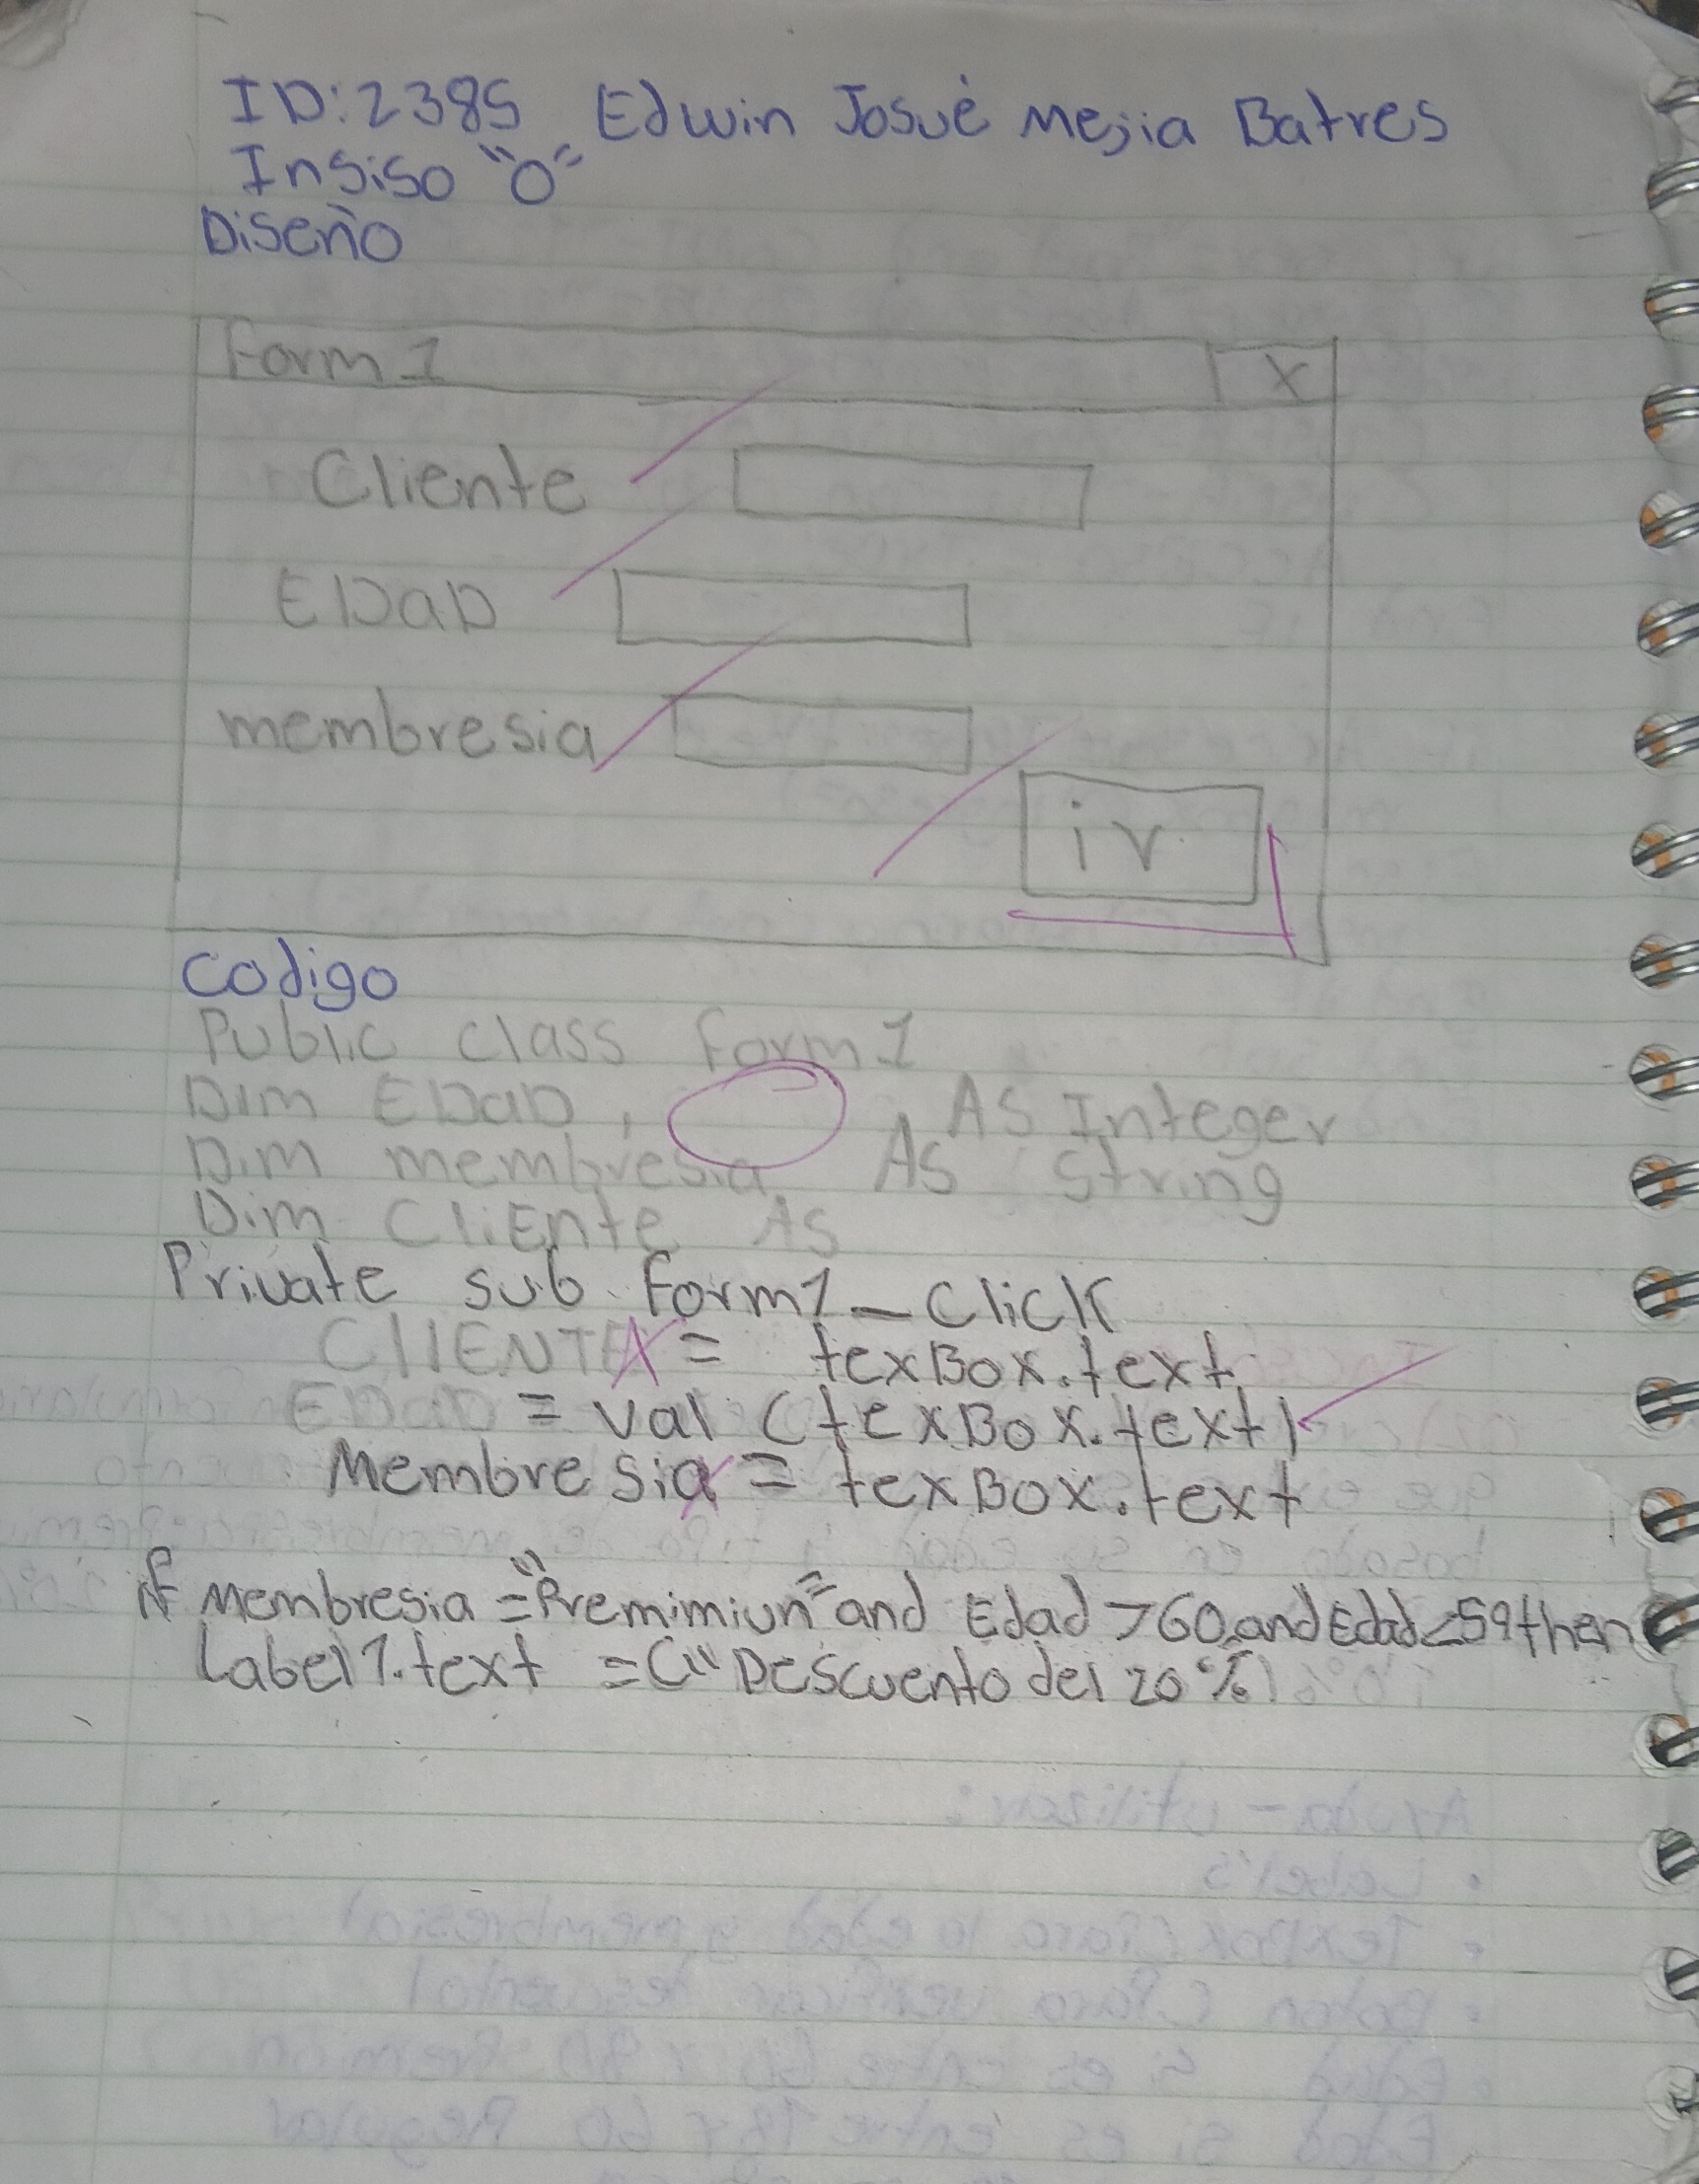 ID: 2385 Edwin Josué Mejia Batres
Insiso "O"
Diseño
Form 1 X
Cliente
EDaD
membresia
ir
Codigo
Public class form 1
Dim EDaD, As Integer
Dim membresia, As String
Dim Cliente As
Private sub form1_Click
CLIENTE = texBox.text
EDaD = val (texBox.text)
Membresia = texBox.text
if Membresia = "Premimiun" and Edad >60 and Edad <59 then
Label1.text = ("Descuento del 20%)